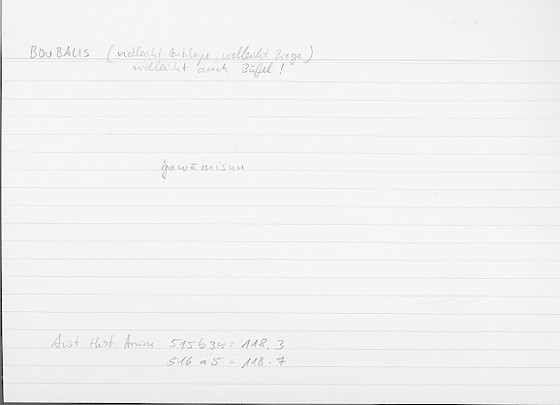 BOUBALIS (vielleicht Antilope, vielleicht Ziege)
vielleicht auch Büffel!
ǧawāmisun
Arist. Hist. Anim 515b34: 118, 3
516 a5 = 118. 7